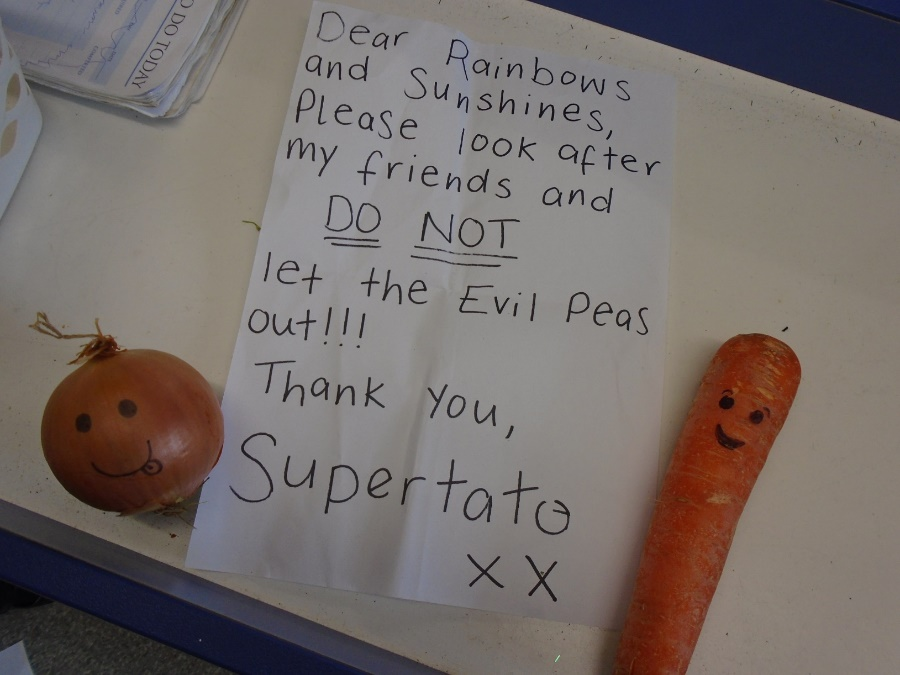 TO DO TODAY
Dear Rainbows
and Sunshines,
Please look after
my friends and
DO NOT
let the Evil Peas
out!!!
Thank you,
Supertato
x x